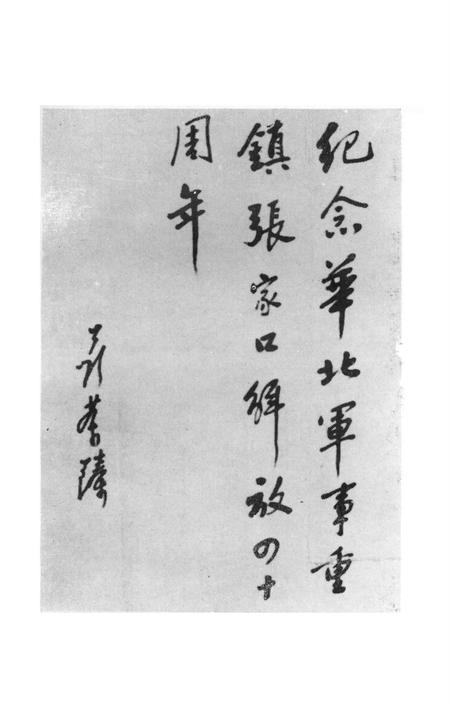 紀念華北軍事重
鎮張家口解放四十
周年
聶榮臻